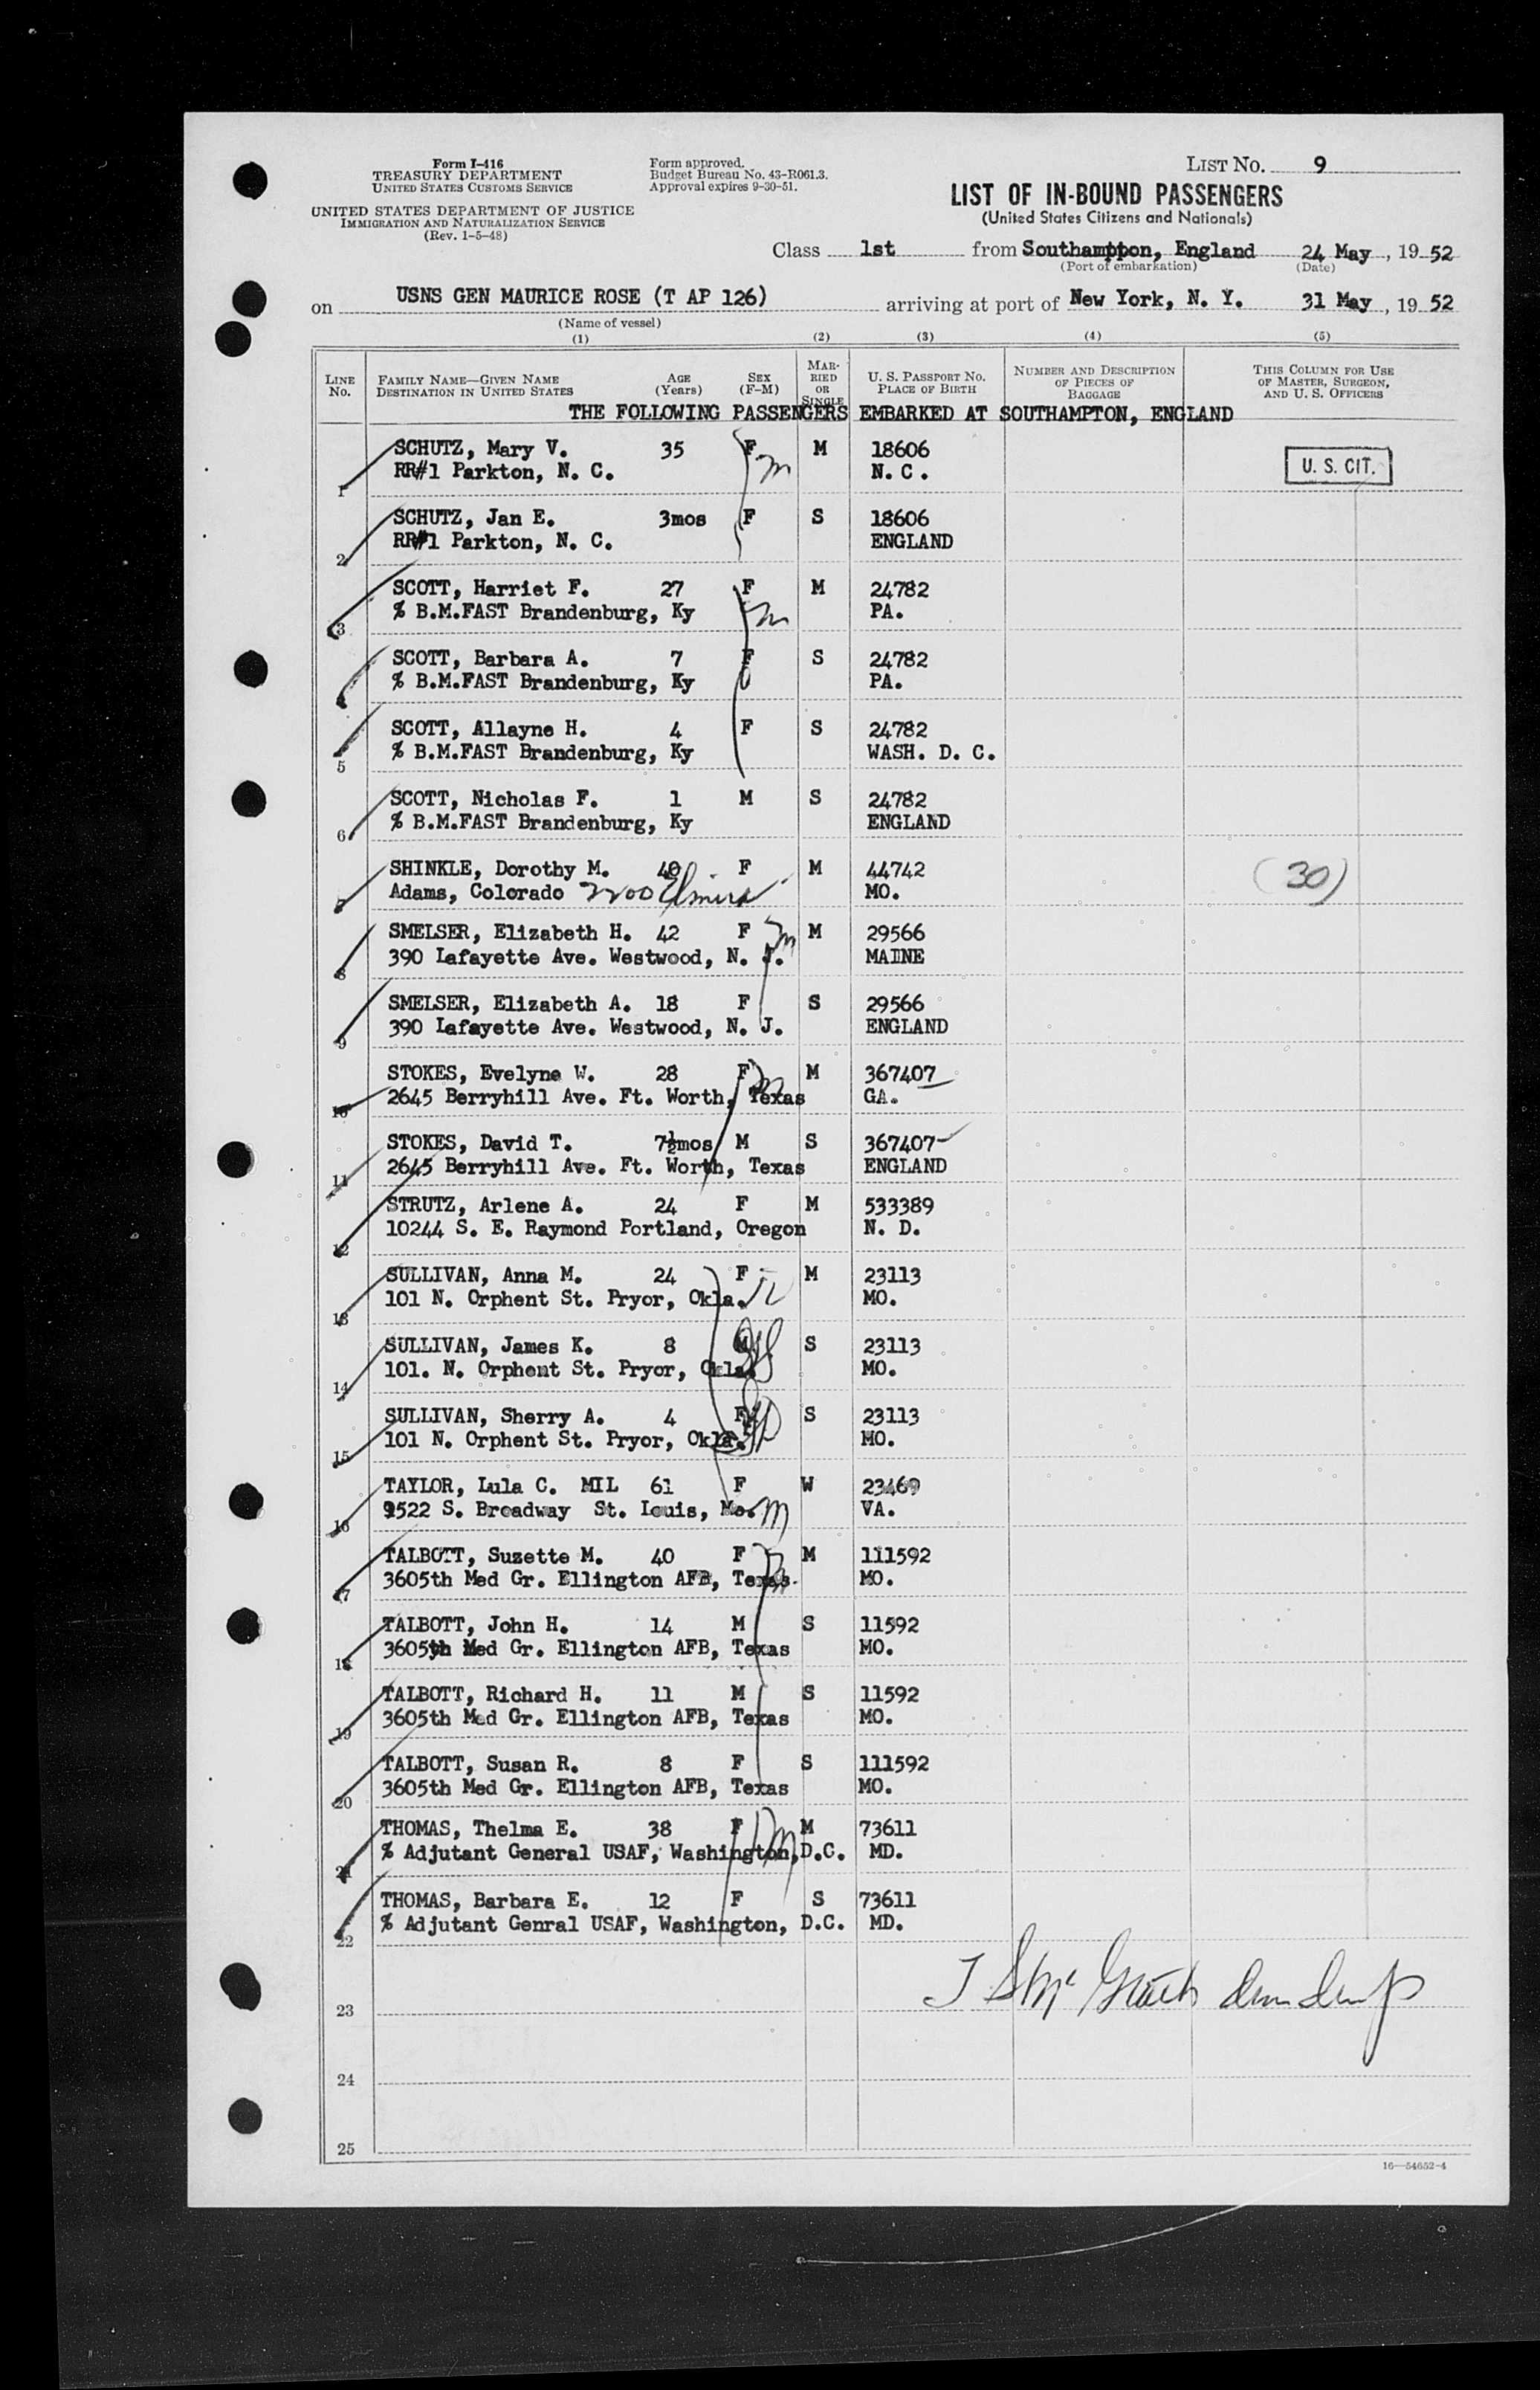 Form I-416
TREASURY DEPARTMENT
UNITED STATES CUSTOMS SERVICE
UNITED STATES DEPARTMENT OF JUSTICE
IMMIGRATION AND NATURALIZATION SERVICE
(Rev. 1-5-48)
Form approved.
Budget Bureau No. 43-R061.3.
Approval expires 9-30-51.
LIST NO. 9
LIST OF IN-BOUND PASSENGERS
(United States Citizens and Nationals)
Class 1st from Southamppon, England 24 May, 1952
(Port of embarkation) (Date)
on USNS GEN MAURICE ROSE (T AP 126) arriving at port of New York, N. Y. 31 May, 1952
(Name of vessel)
(1) (2) (3) (4) (5)
LINE NO. FAMILY NAME—GIVEN NAME DESTINATION IN UNITED STATES AGE (Years) SEX (F-M) MARRIED OR SINGLE U. S. PASSPORT NO. PLACE OF BIRTH NUMBER AND DESCRIPTION OF PIECES OF BAGGAGE THIS COLUMN FOR USE OF MASTER, SURGEON, AND U. S. OFFICERS
THE FOLLOWING PASSENGERS EMBARKED AT SOUTHAMPTON, ENGLAND
SCHUTZ, Mary V. 35 F M 18606 U. S. CIT.
1 RR#1 Parkton, N. C. m N. C.
SCHUTZ, Jan E. 3mos F S 18606
2 RR#1 Parkton, N. C. ENGLAND
SCOTT, Harriet F. 27 F M 24782
3 % B.M.FAST Brandenburg, Ky m PA.
SCOTT, Barbara A. 7 F S 24782
4 % B.M.FAST Brandenburg, Ky PA.
SCOTT, Allayne H. 4 F S 24782
5 % B.M.FAST Brandenburg, Ky WASH. D. C.
SCOTT, Nicholas F. 1 M S 24782
6 % B.M.FAST Brandenburg, Ky ENGLAND
SHINKLE, Dorothy M. 40 F M 44742 (30)
7 Adams, Colorado 2200 Elmira MO.
SMELSER, Elizabeth H. 42 F m M 29566
8 390 Lafayette Ave. Westwood, N. J. MAINE
SMELSER, Elizabeth A. 18 F S 29566
9 390 Lafayette Ave. Westwood, N. J. ENGLAND
STOKES, Evelyne W. 28 F m M 367407
10 2645 Berryhill Ave. Ft. Worth, Texas GA.
STOKES, David T. 7½mos M S 367407
11 2645 Berryhill Ave. Ft. Worth, Texas ENGLAND
STRUTZ, Arlene A. 24 F M 533389
12 10244 S. E. Raymond Portland, Oregon N. D.
SULLIVAN, Anna M. 24 F M 23113
13 101 N. Orphent St. Pryor, Okla. MO.
SULLIVAN, James K. 8 M S 23113
14 101. N. Orphent St. Pryor, Okla. MO.
SULLIVAN, Sherry A. 4 F S 23113
15 101 N. Orphent St. Pryor, Okla. MO.
TAYLOR, Lula C. MIL 61 F W 23469
16 9522 S. Broadway St. Louis, Mo. m VA.
TALBOTT, Suzette M. 40 F M 111592
17 3605th Med Gr. Ellington AFB, Texas. m MO.
TALBOTT, John H. 14 M S 11592
18 3605yh Med Gr. Ellington AFB, Texas MO.
TALBOTT, Richard H. 11 M S 11592
19 3605th Med Gr. Ellington AFB, Texas MO.
TALBOTT, Susan R. 8 F S 111592
20 3605th Med Gr. Ellington AFB, Texas MO.
THOMAS, Thelma E. 38 F M 73611
21 % Adjutant General USAF, Washington, D.C. m MD.
THOMAS, Barbara E. 12 F S 73611
22 % Adjutant Genral USAF, Washington, D.C. MD.
23
24
25
16—54652-4